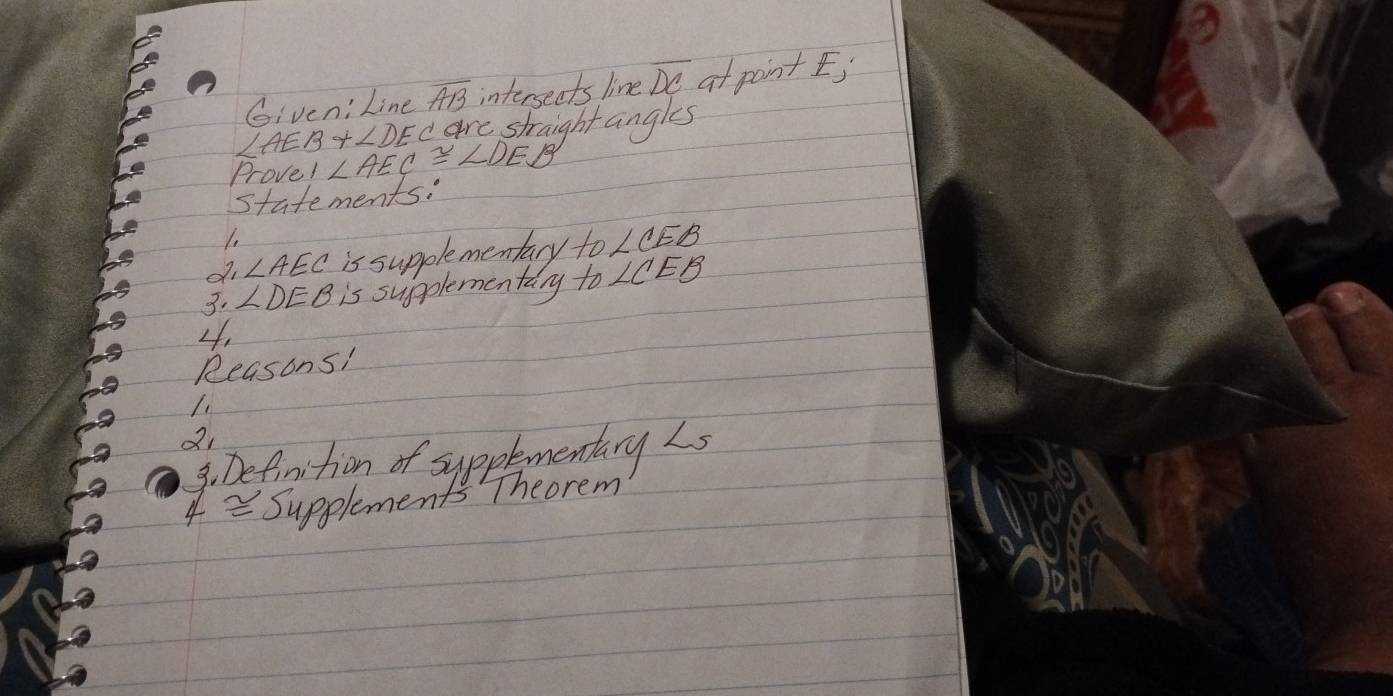 Given: Line A̅B̅ intersects line D̅C̅ at point E;
∠AEB + ∠DEC are straight angles
Prove! ∠AEC ≅ ∠DEB
Statements:
1.
2. ∠AEC is supplementary to ∠CEB
3. ∠DEB is supplementary to ∠CEB
4.
Reasons!
1.
2.
3. Definition of supplementary ∠s
4 ≅ Supplements Theorem